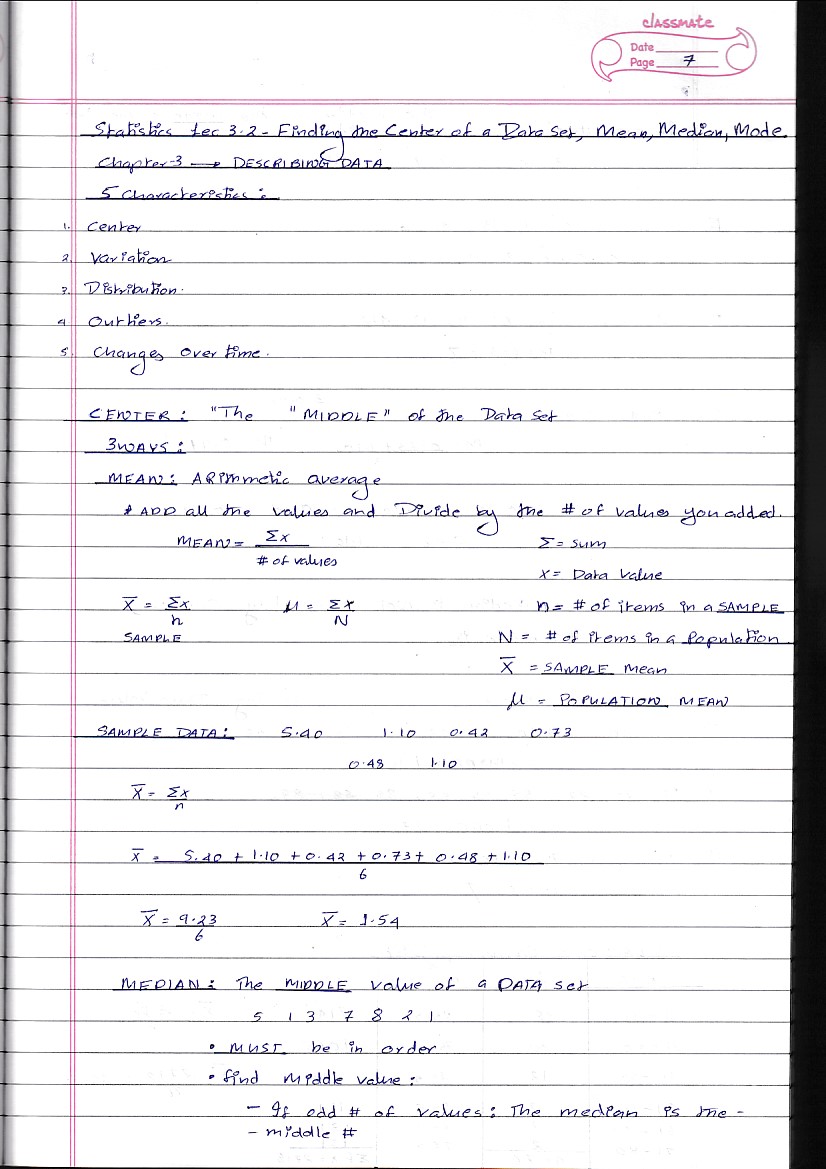 classmate
Date
Page 7
Statistics Lec 3.2 - Finding the Center of a Data Set, Mean, Median, Mode.
Chapter-3 → DESCRIBING DATA
5 Characteristics:
1. Center
2. Variation
3. Distribution.
4 Outliers.
5. Changes over time.
CENTER: "The "MIDDLE" of the Data Set
3 WAYS:
MEAN: ARithmetic average
* ADD all the values and Divide by the # of values you added.
MEAN = Σx / # of values
Σ = Sum
x = Data Value
x̄ = Σx / n μ = Σx / N n = # of items in a SAMPLE
SAMPLE N = # of items in a Population
x̄ = SAMPLE Mean
μ = POPULATION MEAN
SAMPLE DATA: 5.40 1.10 0.42 0.73
0.48 1.10
x̄ = Σx / n
x̄ = 5.40 + 1.10 + 0.42 + 0.73 + 0.48 + 1.10 / 6
x̄ = 9.23 / 6 x̄ = 1.54
MEDIAN: The MIDDLE value of a DATA set
5 1 3 7 8 2 1
• MUST be in order
• find middle value:
- If odd # of values: The median is the -
- middle #